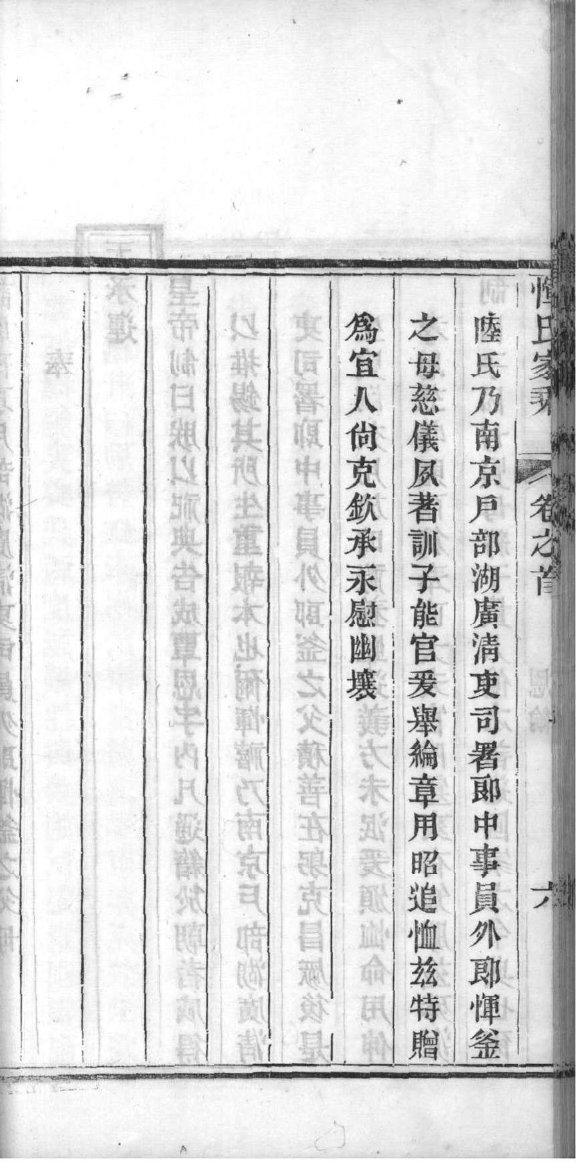 惲氏家乘 卷之首 六
陸氏乃南京戶部湖廣清吏司署郎中事員外郎惲釜
之母慈儀夙著訓子能官爰舉綸章用昭追恤玆特贈
爲宜人尙克欽承永慰幽壤